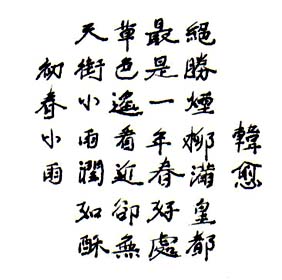 初春小雨
天街小雨潤如酥
草色遙看近卻無
最是一年春好處
絕勝煙柳滿皇都
韓愈